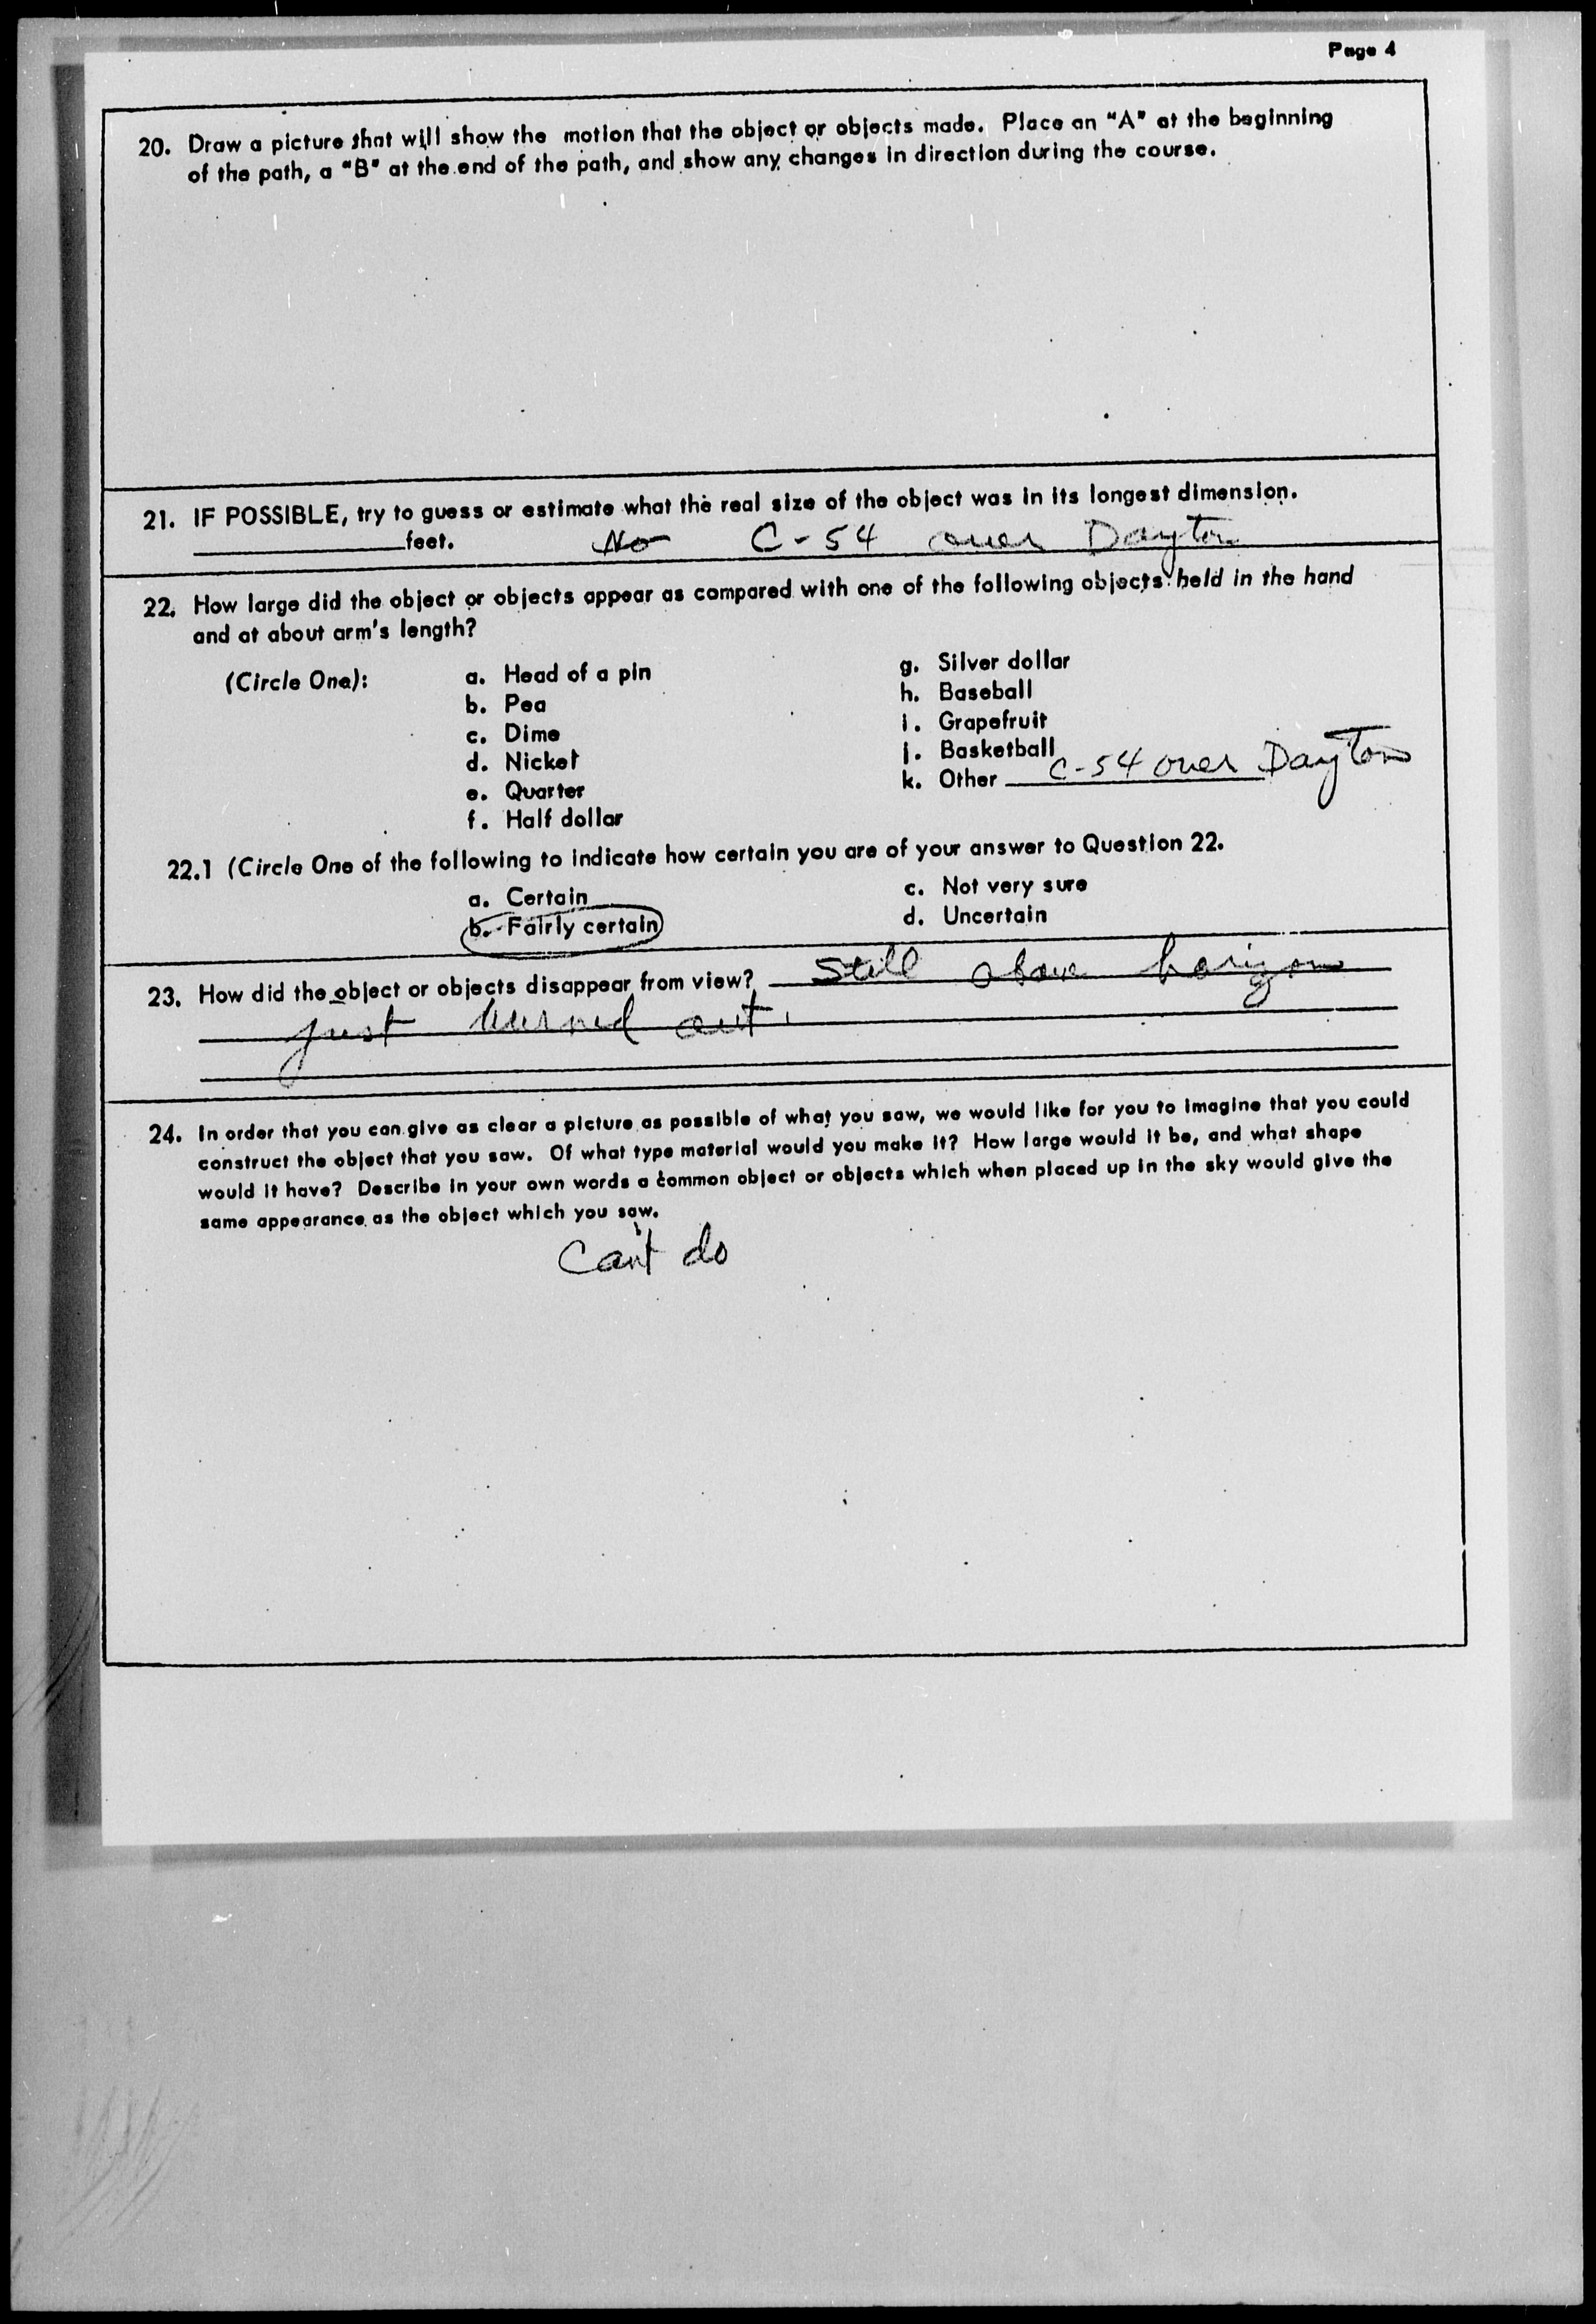 Page 4
20. Draw a picture that will show the motion that the object or objects made. Place an "A" at the beginning
of the path, a "B" at the end of the path, and show any changes in direction during the course.
21. IF POSSIBLE, try to guess or estimate what the real size of the object was in its longest dimension.
______ feet. No C-54 over Dayton
22. How large did the object or objects appear as compared with one of the following objects held in the hand
and at about arm's length?
(Circle One):
a. Head of a pin
b. Pea
c. Dime
d. Nickel
e. Quarter
f. Half dollar
g. Silver dollar
h. Baseball
i. Grapefruit
j. Basketball
k. Other C-54 over Dayton
22.1 (Circle One of the following to indicate how certain you are of your answer to Question 22.
a. Certain
b. Fairly certain
c. Not very sure
d. Uncertain
23. How did the object or objects disappear from view? Still above horizon
just burned out.
24. In order that you can give as clear a picture as possible of what you saw, we would like for you to imagine that you could
construct the object that you saw. Of what type material would you make it? How large would it be, and what shape
would it have? Describe in your own words a common object or objects which when placed up in the sky would give the
same appearance as the object which you saw.
Can't do